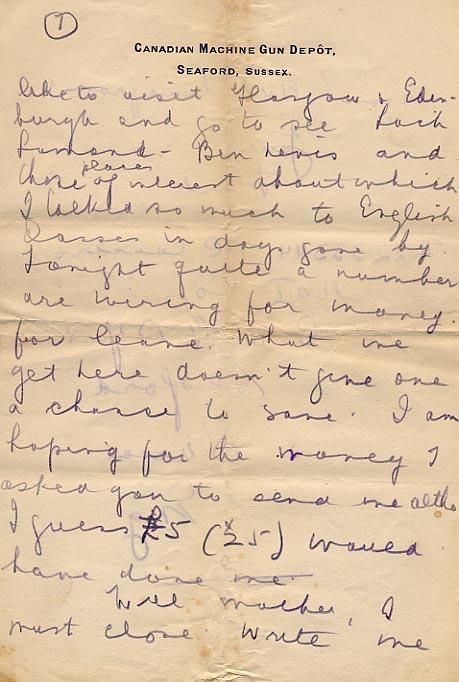 7
CANADIAN MACHINE GUN DEPÔT,
SEAFORD, SUSSEX.
like to visit Glasgow & Eden-
burgh and go to see Loch
Lomond - Ben Nevis and
those places of interest about which
I talked so much to English
classes in days gone by.
Tonight quite a number
are wiring for money.
for leave. What we
get here doesn't give one
a chance to save. I am
hoping for the money I
asked you to send me altho
I guess £5 (£5) would
have done me.
Well mother, I
must close. Write me